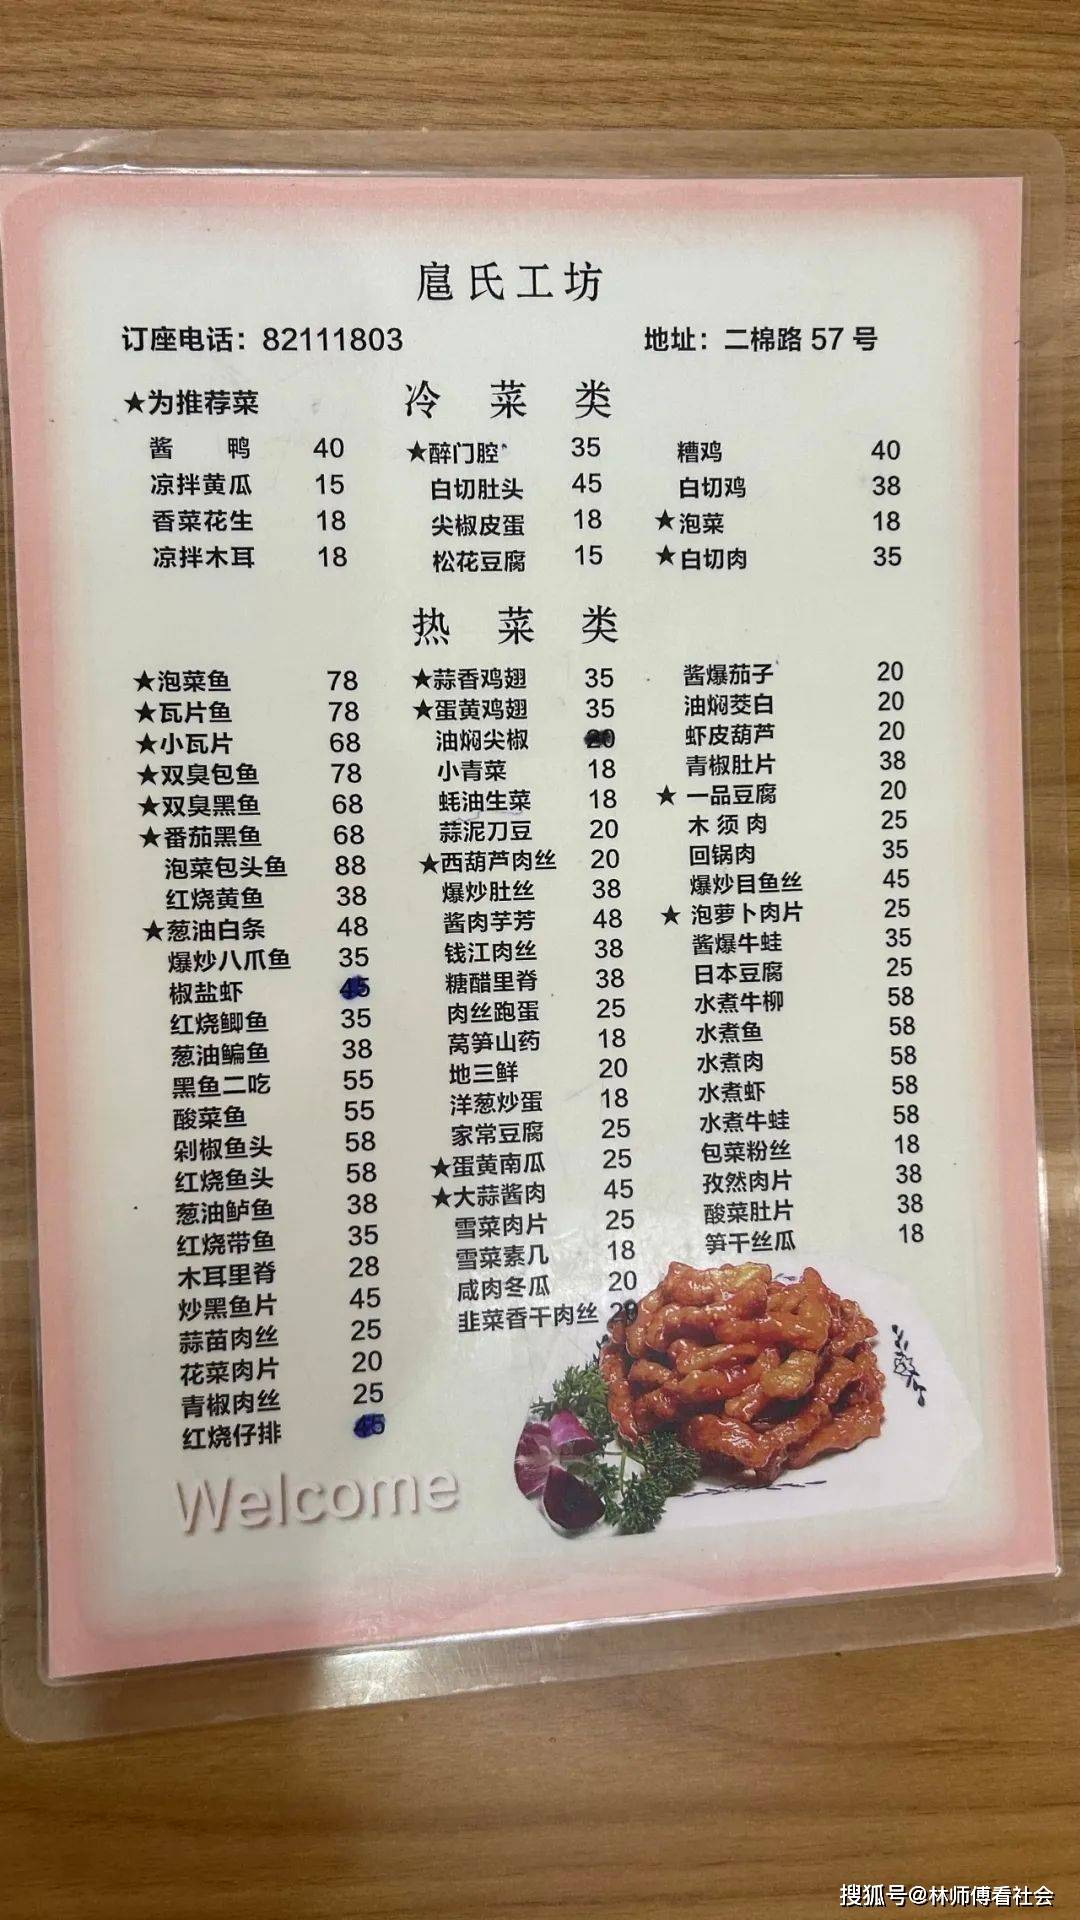 扈氏工坊
订座电话：82111803 地址：二棉路 57 号
★为推荐菜 冷 菜 类
酱 鸭 40 ★醉门腔 35 糟鸡 40
凉拌黄瓜 15 白切肚头 45 白切鸡 38
香菜花生 18 尖椒皮蛋 18 ★泡菜 18
凉拌木耳 18 松花豆腐 15 ★白切肉 35
热 菜 类
★泡菜鱼 78 ★蒜香鸡翅 35 酱爆茄子 20
★瓦片鱼 78 ★蛋黄鸡翅 35 油焖茭白 20
★小瓦片 68 油焖尖椒 20 虾皮葫芦 20
★双臭包鱼 78 小青菜 18 青椒肚片 38
★双臭黑鱼 68 蚝油生菜 18 ★一品豆腐 20
★番茄黑鱼 68 蒜泥刀豆 20 木须肉 25
泡菜包头鱼 88 ★西葫芦肉丝 20 回锅肉 35
红烧黄鱼 38 爆炒肚丝 38 爆炒目鱼丝 45
★葱油白条 48 酱肉芋艿 48 ★泡萝卜肉片 25
爆炒八爪鱼 35 钱江肉丝 38 酱爆牛蛙 35
椒盐虾 45 糖醋里脊 38 日本豆腐 25
红烧鲫鱼 35 肉丝跑蛋 25 水煮牛柳 58
葱油鳊鱼 38 莴笋山药 18 水煮鱼 58
黑鱼二吃 55 地三鲜 20 水煮肉 58
酸菜鱼 55 洋葱炒蛋 18 水煮虾 58
剁椒鱼头 58 家常豆腐 25 水煮牛蛙 58
红烧鱼头 58 ★蛋黄南瓜 25 包菜粉丝 18
葱油鲈鱼 38 ★大蒜酱肉 45 孜然肉片 38
红烧带鱼 35 雪菜肉片 25 酸菜肚片 38
木耳里脊 28 雪菜素几 18 笋干丝瓜 18
炒黑鱼片 45 咸肉冬瓜 20
蒜苗肉丝 25 韭菜香干肉丝 20
花菜肉片 20
青椒肉丝 25
红烧仔排 45
Welcome
搜狐号@林师傅看社会